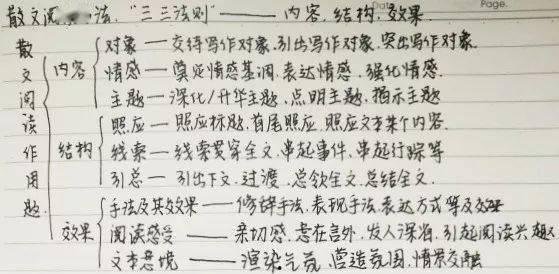 散文阅 法.“三三法则”——内容.结构.效果.
散文阅读作用题
内容
对象——交待写作对象.引出写作对象.突出写作对象.
情感——奠定情感基调.表达情感.强化情感.
主题——深化/升华主题.点明主题.揭示主题
结构
照应——照应标题.首尾照应.照应文本某个内容.
线索——线索贯穿全文.串起事件.串起行踪等
引总——引出下文.过渡.总领全文.总结全文.
效果
手法及其效果——修辞手法.表现手法.表达方式等及效果
阅读感受——亲切感.意在言外.发人深省.引起阅读兴趣
文本意境——渲染气氛.营造氛围.情景交融